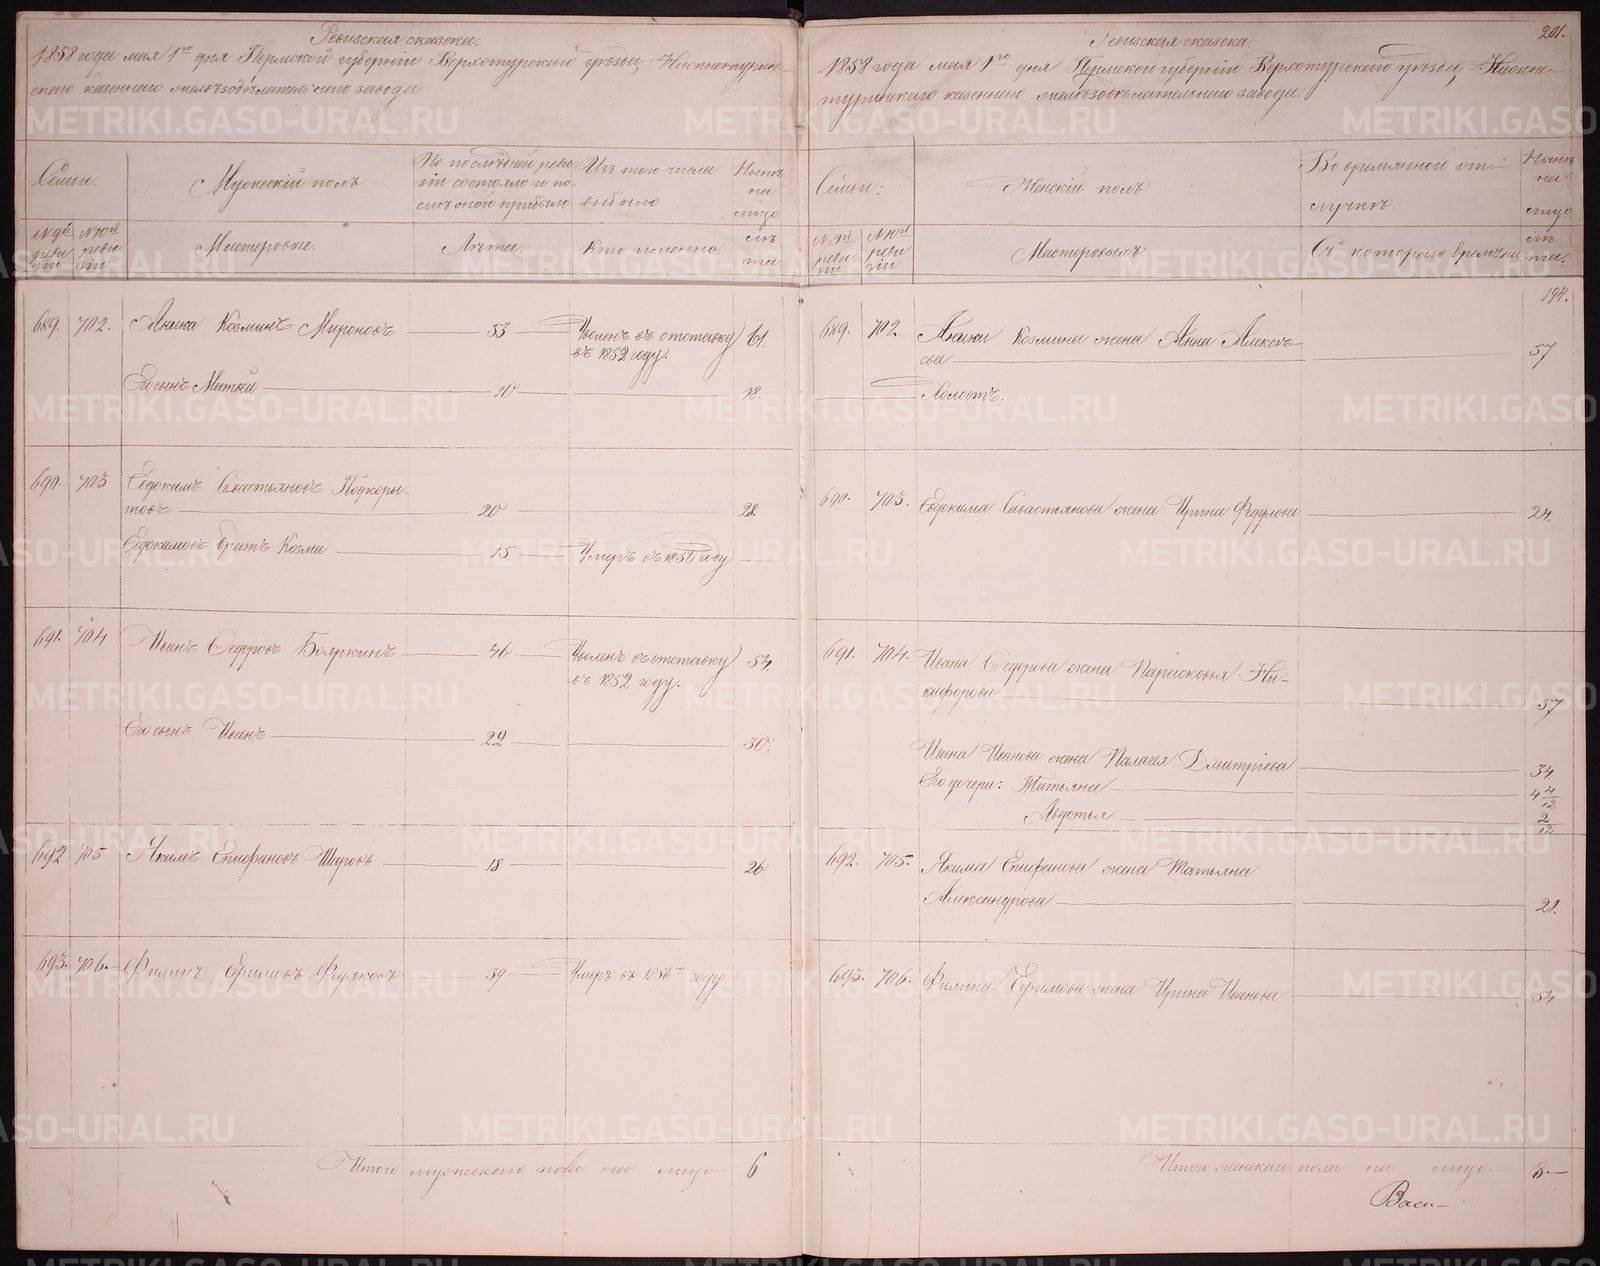 Ревизская сказка.
1858 года мая 1го дня Пермской губернiи Верхотурскаго уѣзда, Нижнетурин-
скаго казеннаго желѣзодѣлательнаго завода
Семьи.
Мужескiй полъ
По послѣдней реви-
зiи состояло и по-
слѣ оной прибыло
Изъ того числа
выбыло
Нынѣ
на
лицо
№ 9й
реви
зiи
№ 10й
реви
зiи
Мастеровые.
Лѣта.
Кто именно.
лѣ
та
689. 702. Козминъ Мироновъ 53 Уволенъ въ отставку 61.
въ 1852 году.
Его сынъ Матвей 10 18.
690. 703 Евдокимъ Савастьяновъ Подкоры-
товъ 20 28.
Евдокимовъ братъ Козма 15 Умеръ въ году
691. 704 Иванъ Федоровъ Бояркинъ 46 Уволенъ въ отставку 54.
въ 1852 году.
Его сынъ Иванъ 22 30.
692 705 Якимъ Епифановъ 18 26
693. 706. Филипъ Ефимовъ 39 Умеръ въ 1856мъ году.
Итого мужескаго пола на лицо 6
201.
Ревизская сказка.
1858 года мая 1го дня Пермской губернiи Верхотурскаго уѣзда Нижне-
туринскаго казеннаго желѣзодѣлательнаго завода.
Семьи:
Женскiй полъ
Во временной от-
лучкѣ.
Нынѣ
на
лицо
№ 9й
реви
зiи
№ 10й
реви
зiи
Мастеровыхъ
Съ котораго времени
лѣ
та.
194.
689. 702. Козмина жена Анна Алексѣ-
ева 57
Холостъ.
690. 703. Евдокима Савастьянова жена Ирина Федулова 24.
691. 704. Ивана Федорова жена Парасковья Ни-
кифорова 57
Ивана Иванова жена Палагея Дмитрiева 34
Его дочери: Татьяна 4 4/12
Авдотья 2/12
692. 705. Якима Епифанова жена Татьяна
Александрова 21.
693. 706. Филипа Ефимова жена Ирина Иванова 54
Итого женскаго пола на лицо 8
Васи-
METRIKI.GASO-URAL.RU